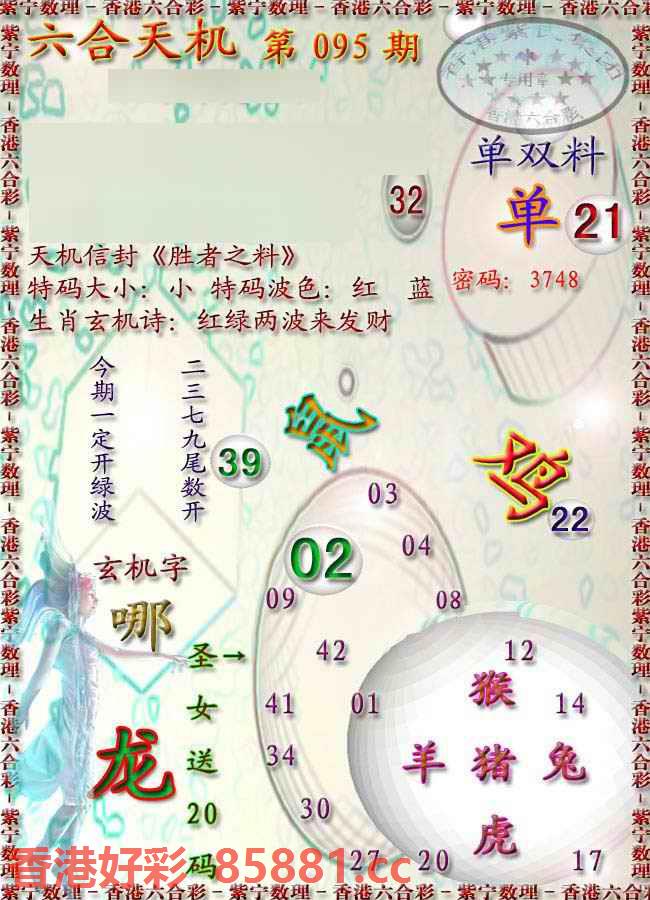 紫宁数理－香港六合彩－紫宁数理－香港六合彩－紫宁数理－香港六合彩
六合天机 第 095 期
专用章
香港六合彩
单双料
单 21
32
天机信封《胜者之料》
特码大小：小 特码波色：红 蓝
密码：3748
生肖玄机诗：红绿两波来发财
今期一定开绿波
二三七九尾数开
39
鼠
鸡
22
03
02
04
玄机字
哪
09
08
圣女送20码
→
42
12
猴
41
01
14
龙
34
羊 猪 兔
30
虎
27
20
17
香港好彩 85881.cc
紫宁数理－香港六合彩－紫宁数理－香港六合彩－紫宁数理－香港六合彩